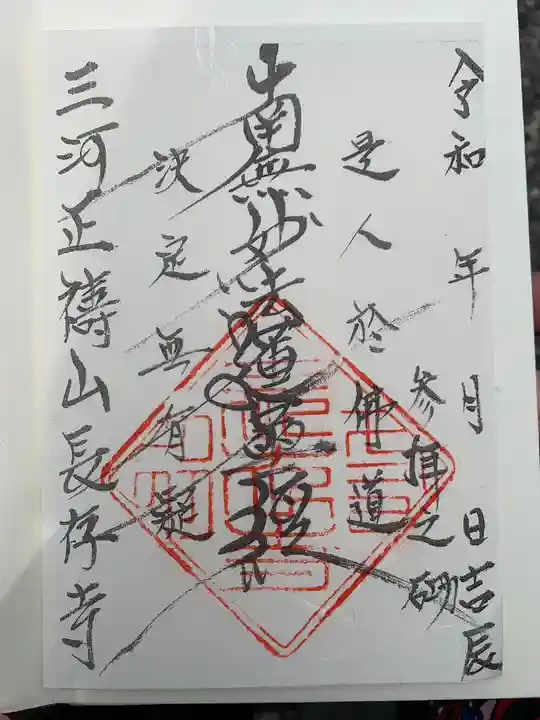 令和 年 月 日吉辰
参拝之砌
是人於佛道
南無妙法蓮華経
決定無有疑
三河正禱山長存寺